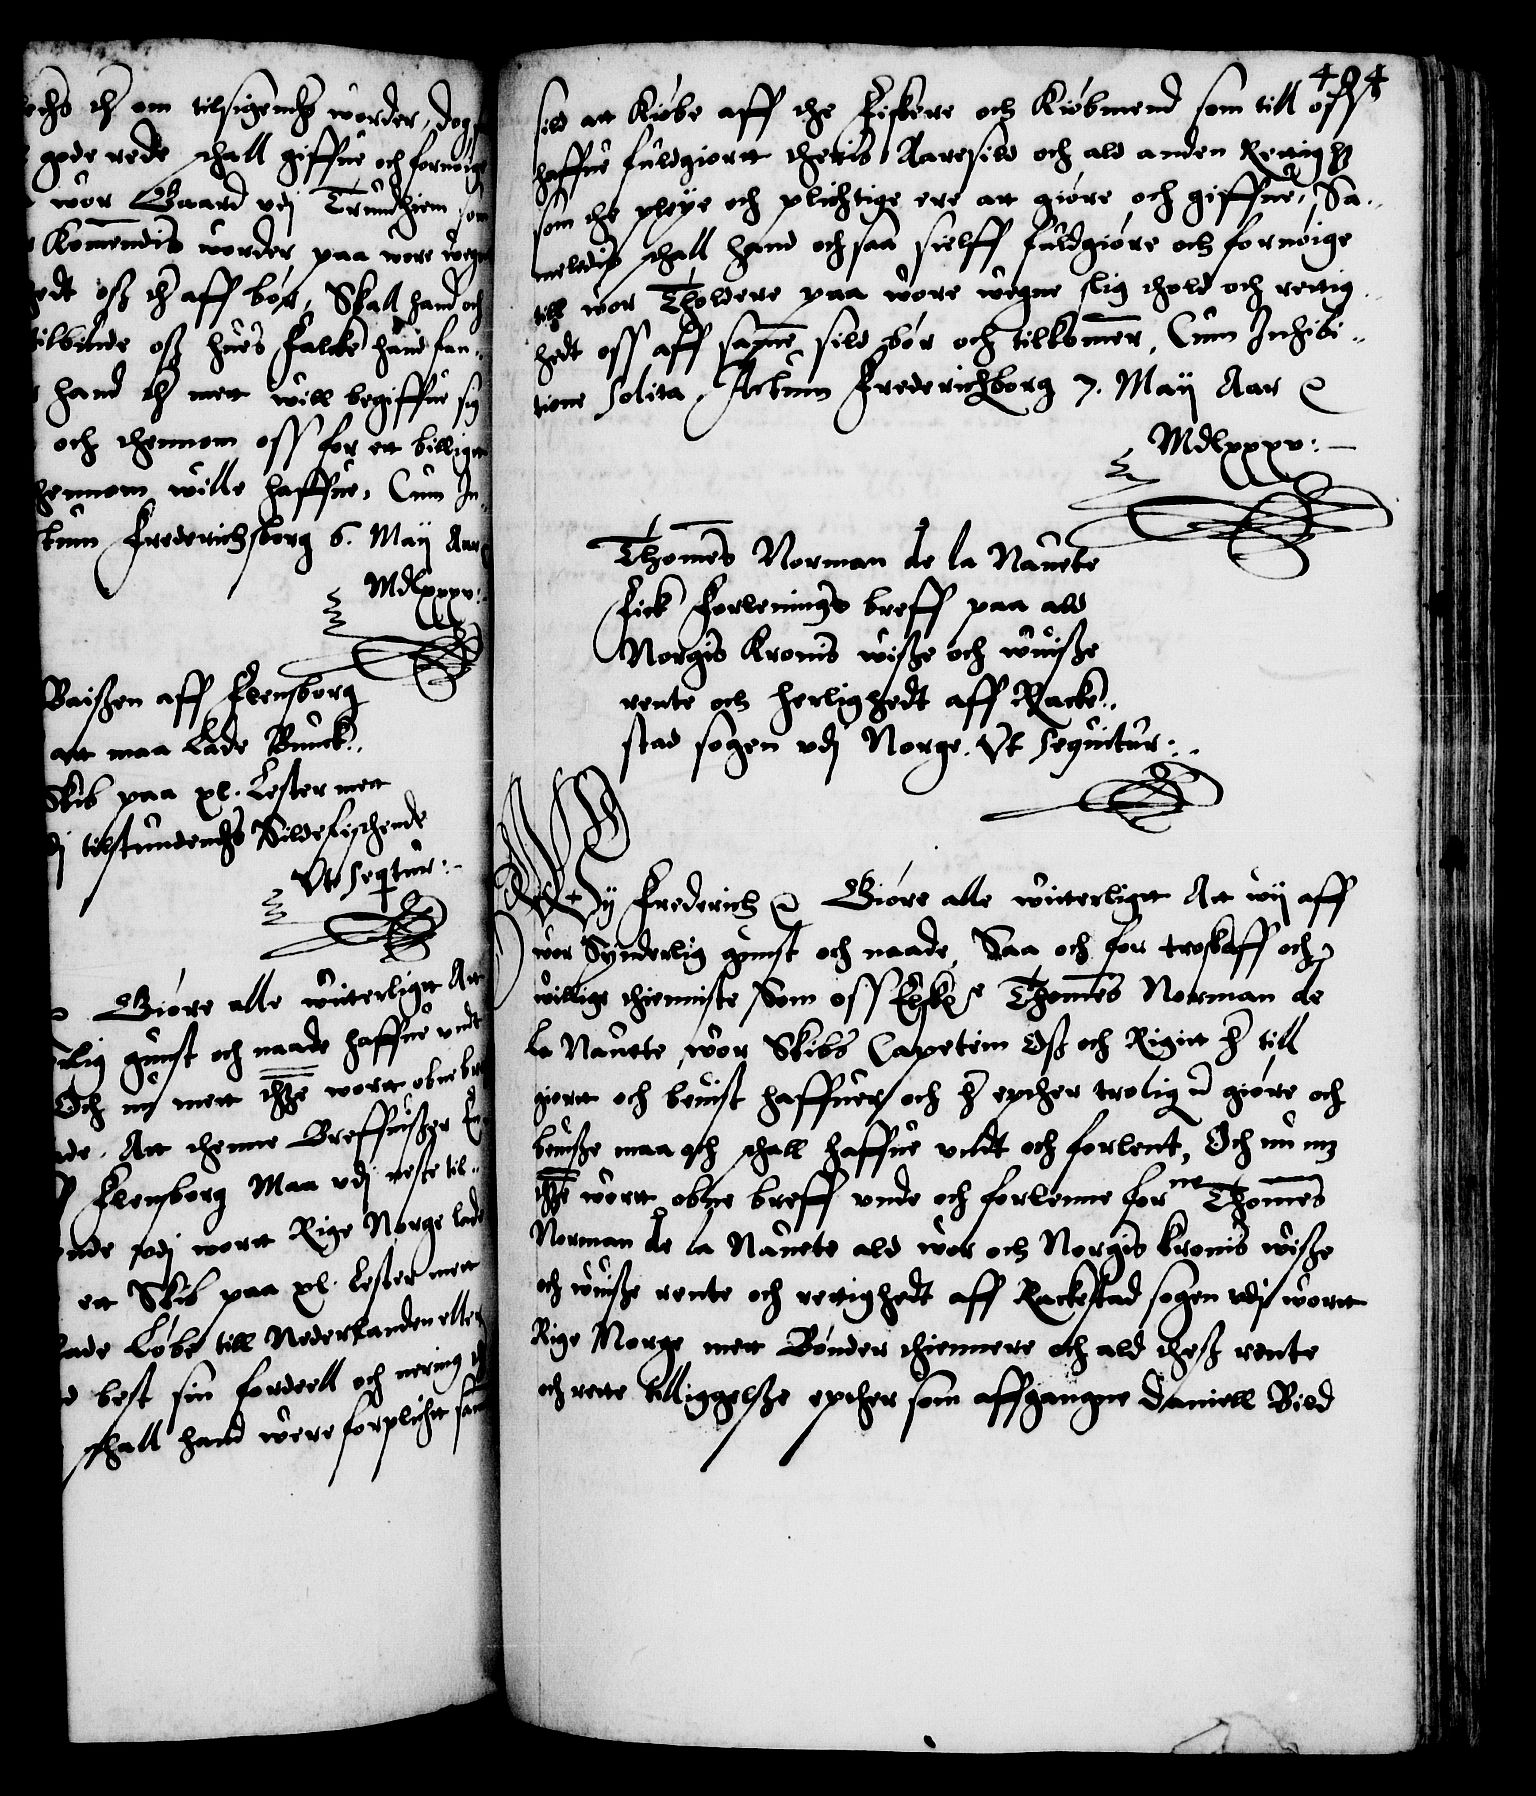 om tilsigendis worder, dog
gode rede schall giffue och fornøige
wor Gaard vdj Trundhiem som
Kommendis worder paa wore wegne
hedt oß aff bør, Skall hand och
tilbinde oß hues Falcke hand fan„
hand mett will begiffue sig
och thennom oss for en billigen
thennom wille haffue, Cum In„
ctum Frederichsborg 6. Maij Aar
Mdlxxxv:
Baißen aff Flensborg
att maa Lade
Skib paa xl. Lester mett
dj tilstundendis Sildefischende
Vt Sequitur:
Giøre alle witterligtt Att
rlig gunst och naade haffue vndt
Och nu mett thtte wortt obne breff
de. Att thenne Breffuißer
ff Flensborg Maa vdj neste til„
ende vdj wortt Rige Norge lade
ett Skib paa xl. Lester mett
lade Løbe till Nederlanden eller
d best sin fordeell och nering
schall hand were forplicht
494
sild att Kiøbe aff the Fiskere och Kiøbmend som till oss
haffue fuldgiortt theris Aaresild och ald anden Rettighedt
som the pleye och plichtige ere att giøre och giffue, Sa„
meledis schall hand ochsaa sielff fuldgiøre och fornøige
till wor Tholdere paa wore wegne slig thold och rettig„
hedt oss aff samme sild bør och tilkommer, Cum Inhibi„
tione Solita, Actum Frederichborg 7. Maij Aar
Mdlxxxv:
Thomes Norman de la Nauete
Fick Forlenings breff paa ald
Norgis Kronis wiße och wuiße
rente och herlighedt aff Racke„
stad sogen vdj Norge. Vt Sequitur:
Wij Frederich Giøre alle witterligtt Att wij aff
wor Synderlig gunst och naade, Saa och for troskaff och
willige thienniste Som oss Thomes Norman de
la Nauete wor Skibs Capetein Oß och Rigitt till
giortt och beuist haffuer och epther trolig giøre och
beuiße maa och schall haffue vndt och forlent, Och nu
thtte wortt obne breff vnde och forlenne forne Thomes
Norman de la Nauete ald wor och Norgis kronis wiße
och wuiße rente och rettighedt aff Rackestad sogen vdj wortt
Rige Norge mett Bønder thiennere och ald theß rente
och rette tilliggelße epther som affgangne Daniell Bild